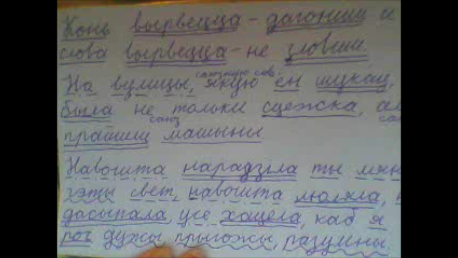 Конь вырвецца - дагониш а
слова вырвецца - не зловиш.
На вулицы, якую ён шукау,
союзную сов.
была не толька сцежка,
прайшиц машыны
союз
Навошта нарадзіла ты мяне
гэты свет, навошта люляла,
дасыпала, усе хацела, каб я
рос дужы прыгожы, разумны